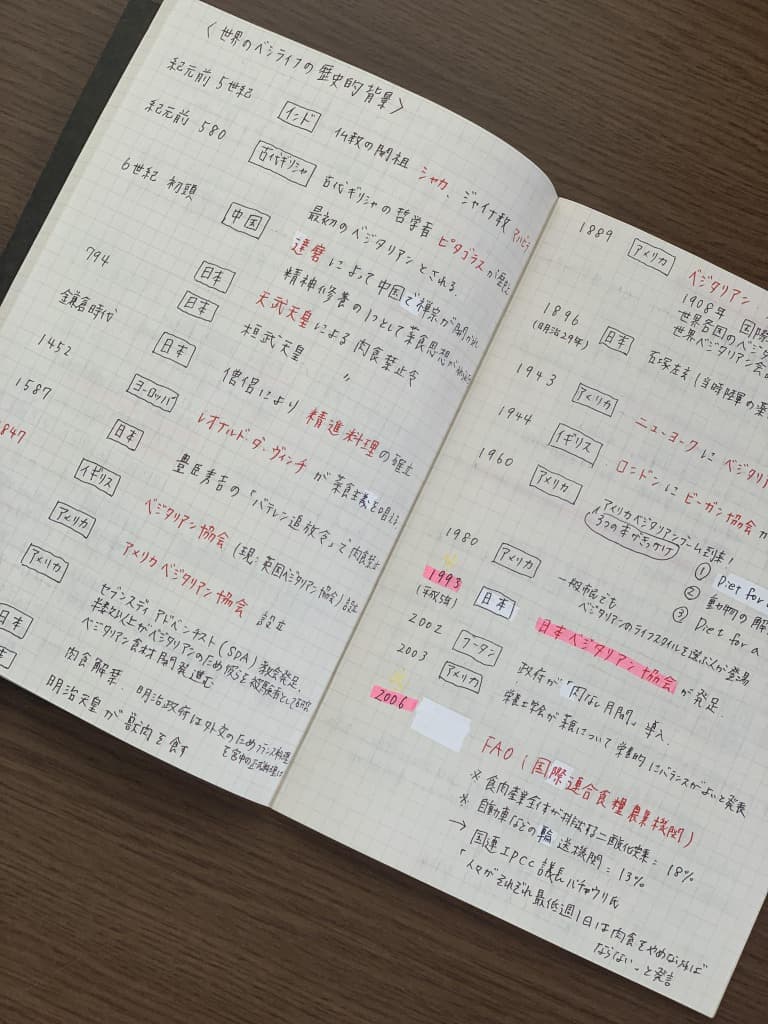 〈世界のベジライフの歴史的背景〉
紀元前 5世紀 インド 仏教の開祖 シャカ、ジャイナ教 マハビラ
紀元前 580 古代ギリシャ 古代ギリシャの哲学者 ピタゴラスが
最初のベジタリアンとされる。
6世紀 初頭 中国 達磨によって中国で禅宗が開かれ
精神修養の1つとして菜食思想が
794 日本 天武天皇による肉食禁止令
日本 桓武天皇 〃
鎌倉時代 日本 僧侶により 精進料理の確立
1452 ヨーロッパ レオナルド・ダ・ヴィンチが菜食主義を唱える
1587 日本 豊臣秀吉の「バテレン追放令」で肉食禁止
1847 イギリス ベジタリアン協会(現:英国ベジタリアン協会)設立
アメリカ アメリカベジタリアン協会 設立
アメリカ セブンスディアドベンチスト(SDA)教会発足。
半数以上がベジタリアンのため
ベジタリアン食材開発進む
日本 肉食解禁 明治政府は外交のためフランス料理
を宮中の正式料理に
明治天皇が獣肉を食す
1889 アメリカ ベジタリアン
1908年 国際
世界各国のベジタ
世界ベジタリアン会
1896 日本 石塚左玄(当時陸軍の薬
(明治29年)
1943 アメリカ ニューヨークにベジタリ
1944 イギリス ロンドンにビーガン協会が
1960 アメリカ アメリカベジタリアンブーム到来!
3つの本がきっかけ
① Diet for a
② 動物の解
③ Diet for a
1980 アメリカ 一般市民でも
ベジタリアンのライフスタイルを選ぶ人が登場
1993 日本 日本ベジタリアン協会が発足.
(平成5年)
2002 ブータン 政府が「肉なし月間」導入.
2003 アメリカ 栄養士学会が菜食について栄養的にバランスがよいと発表
2006 FAO(国際連合食糧農業機関)
※ 食肉産業全体が排出する二酸化炭素=18%
※ 自動車などの輸送機関=13%
→ 国連IPCC議長パチャウリ氏
「人々がそれぞれ最低週1日は肉食をやめなければ
ならない」と発言